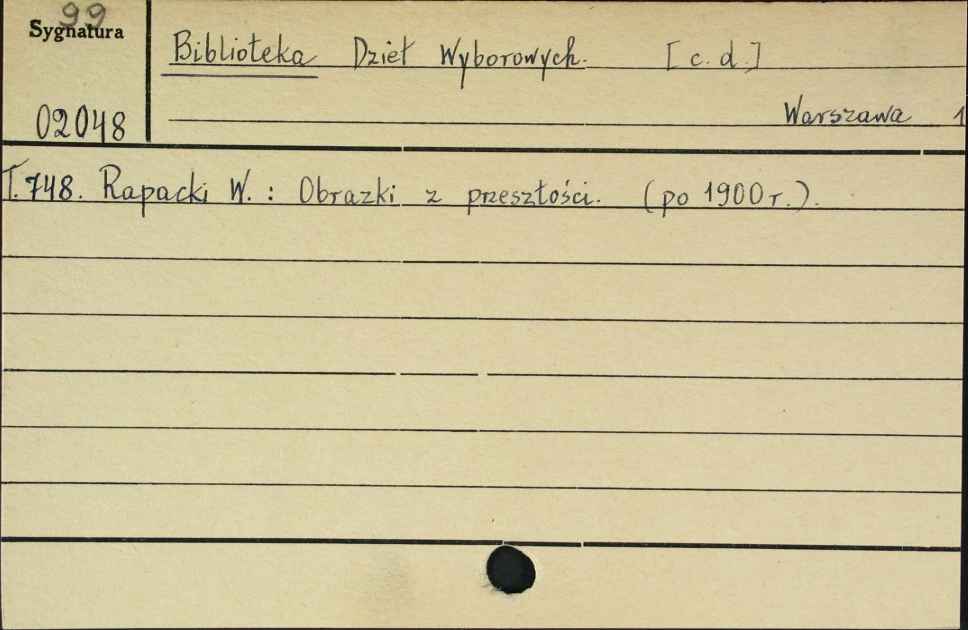 99
Sygnatura
Biblioteka Dzieł Wyborowych. [c.d.]
02048
Warszawa 1
T.748. Rapacki W. : Obrazki z przeszłości. (po 1900 r.).